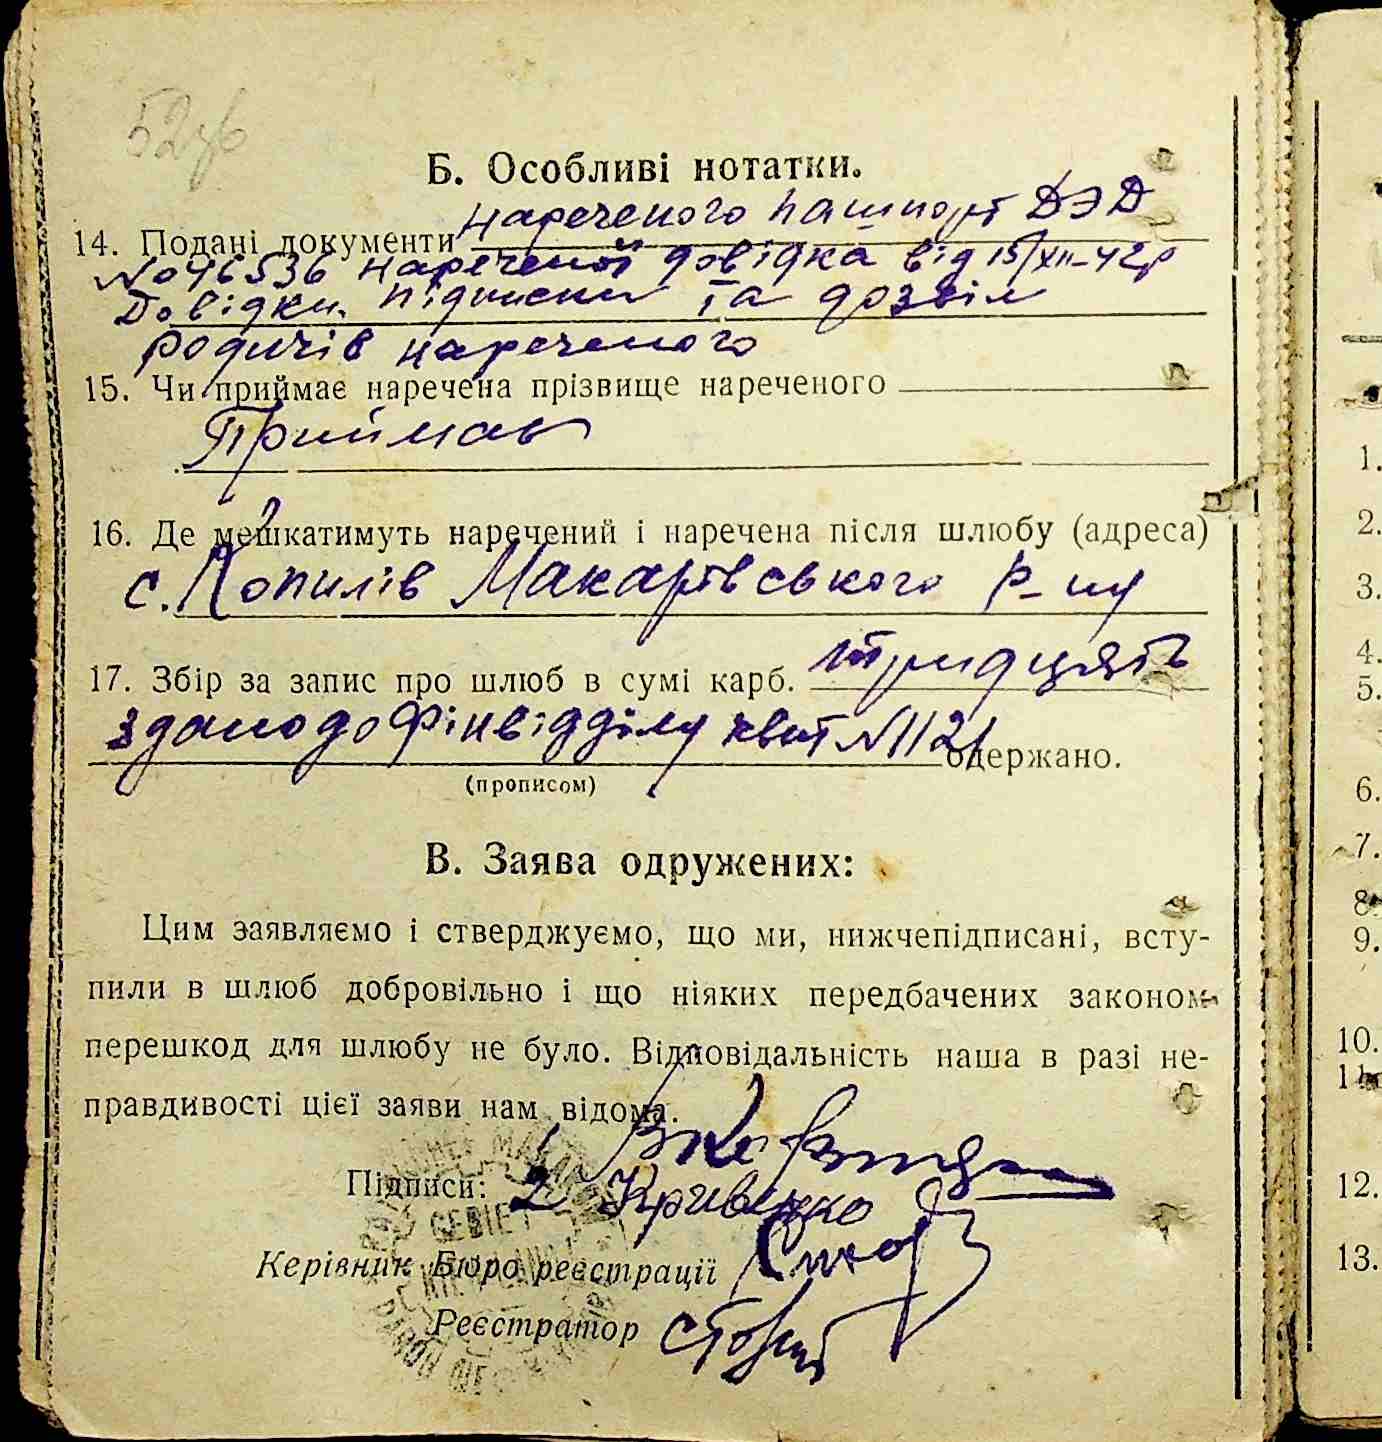 52зв
Б. Особливі нотатки.
14. Подані документи нареченого пашпорт ДЭД
№ 046536 нареченої довідка від 15/XII-42р
Довідки, підписки та дозвіл
родичів нареченого
15. Чи приймає наречена прізвище нареченого
Приймає
16. Де мешкатимуть наречений і наречена після шлюбу (адреса)
с. Копилів Макарівського р-ну
17. Збір за запис про шлюб в сумі карб. тридцять
здано до фінвідділу квит № 1121 одержано.
(прописом)
В. Заява одружених:
Цим заявляємо і стверджуємо, що ми, нижчепідписані, всту-
пили в шлюб добровільно і що ніяких передбачених законом
перешкод для шлюбу не було. Відповідальність наша в разі не-
правдивості цієї заяви нам відома.
Підписи:
2. Кривенко
Керівник Бюро реєстрації
Реєстратор
1.
2.
3.
4.
5.
6.
7.
8.
9.
10.
11.
12.
13.